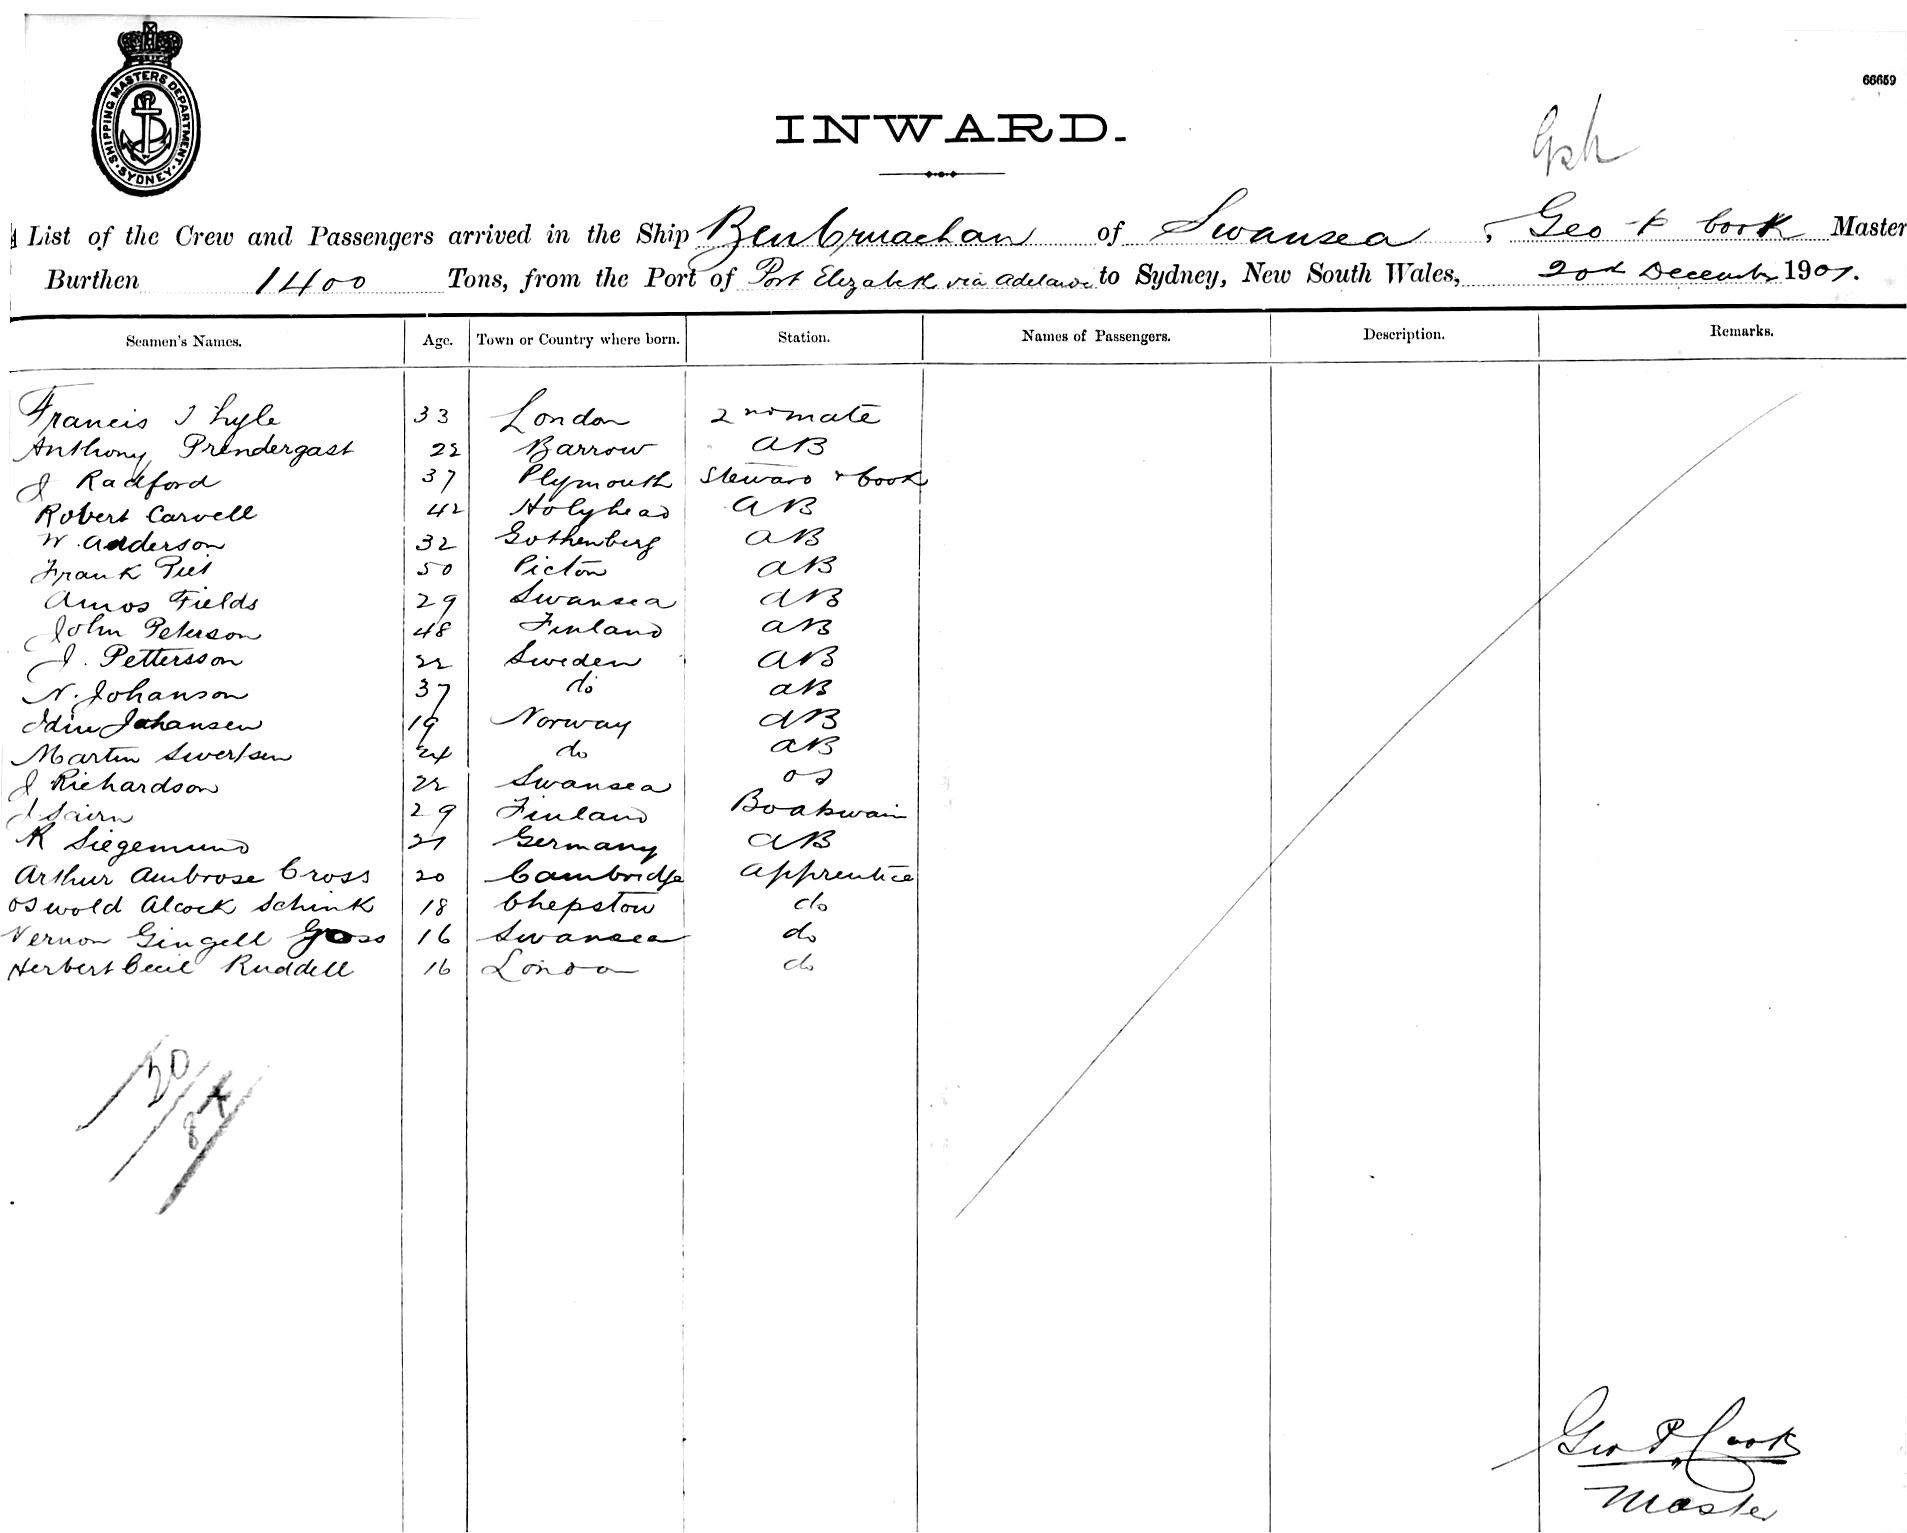 SHIPPING MASTERS DEPARTMENT
SYDNEY
66659
INWARD.
List of the Crew and Passengers arrived in the Ship Ben Cruachan of Swansea, Geo P Cook Master
Burthen 1400 Tons, from the Port of Port Elizabeth via Adelaide to Sydney, New South Wales, December 1901.
Seamen's Names. Age. Town or Country where born. Station. Names of Passengers. Description. Remarks.
Francis J Lyle 33 London 2nd mate
Anthony Prendergast 22 Barrow AB
J Radford 37 Plymouth Steward & Cook
Robert Carvell 42 Holyhead AB
W. Anderson 32 Gothenberg AB
Frank 50 Picton AB
Amos Fields 29 Swansea AB
John Peterson 48 Finland AB
J. Pettersson 22 Sweden AB
N. Johanson 37 do AB
Johansen 19 Norway AB
Martin Sivertsen 24 do AB
J Richardson 22 Swansea OS
J 29 Finland Boatswain
R Siegemund 21 Germany AB
Arthur Ambrose Cross 20 Cambridge Apprentice
Oswold Alcock Schink 18 Chepstow do
Vernon Gingell Gross 16 Swansea do
Herbert Cecil Ruddell 16 London do
Geo P. Cook
Master